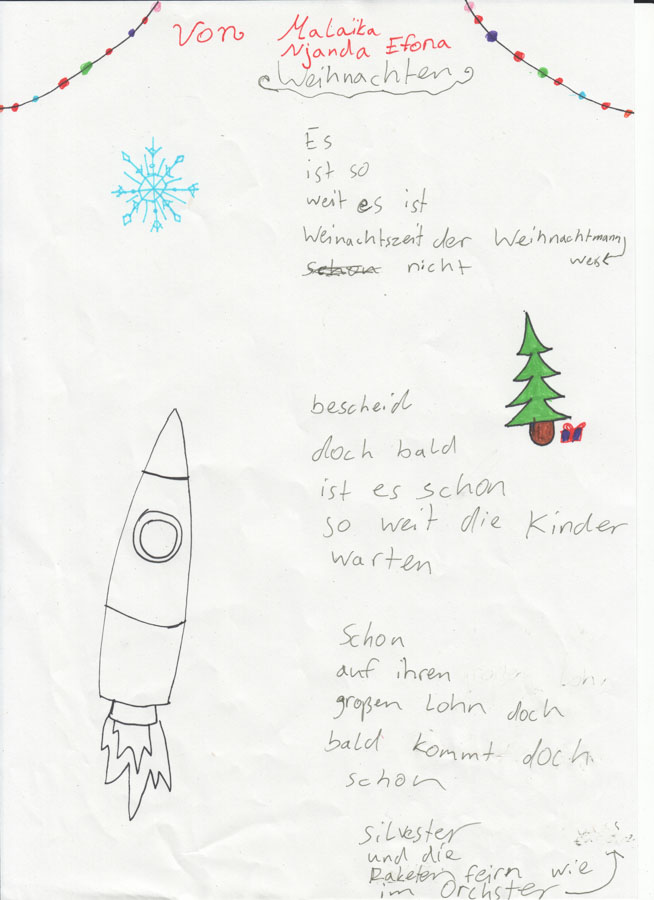 Von Malaika
Njanda Efona
Weihnachten
Es
ist so
weit es ist
Weinachtszeit der Weihnachtmann
schon nicht weist
bescheid
doch bald
ist es schon
so weit die Kinder
warten
Schon
auf ihren
großen Lohn doch
bald kommt doch
schon
silvester
und die
Raketen feirn wie
im Orchster